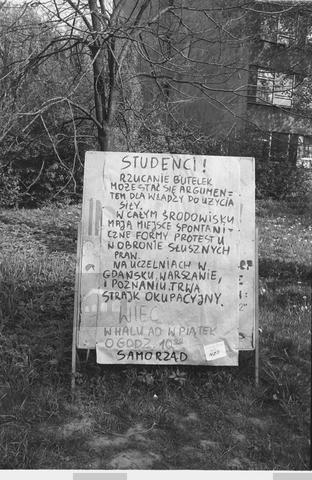 STUDENCI!
RZUCANIE BUTELEK
MOŻE STAĆ SIĘ ARGUMEN=
TEM DLA WŁADZY DO UŻYCIA
SIŁY.
W CAŁYM ŚRODOWISKU
MAJĄ MIEJSCE SPONTANI=
CZNE FORMY PROTESTU
W OBRONIE SŁUSZNYCH
PRAW.
NA UCZELNIACH W
GDAŃSKU, WARSZAWIE,
I POZNANIU TRWA
STRAJK OKUPACYJNY.
WIEC
W HALU AD W PIĄTEK
O GODZ. 10
SAMORZĄD